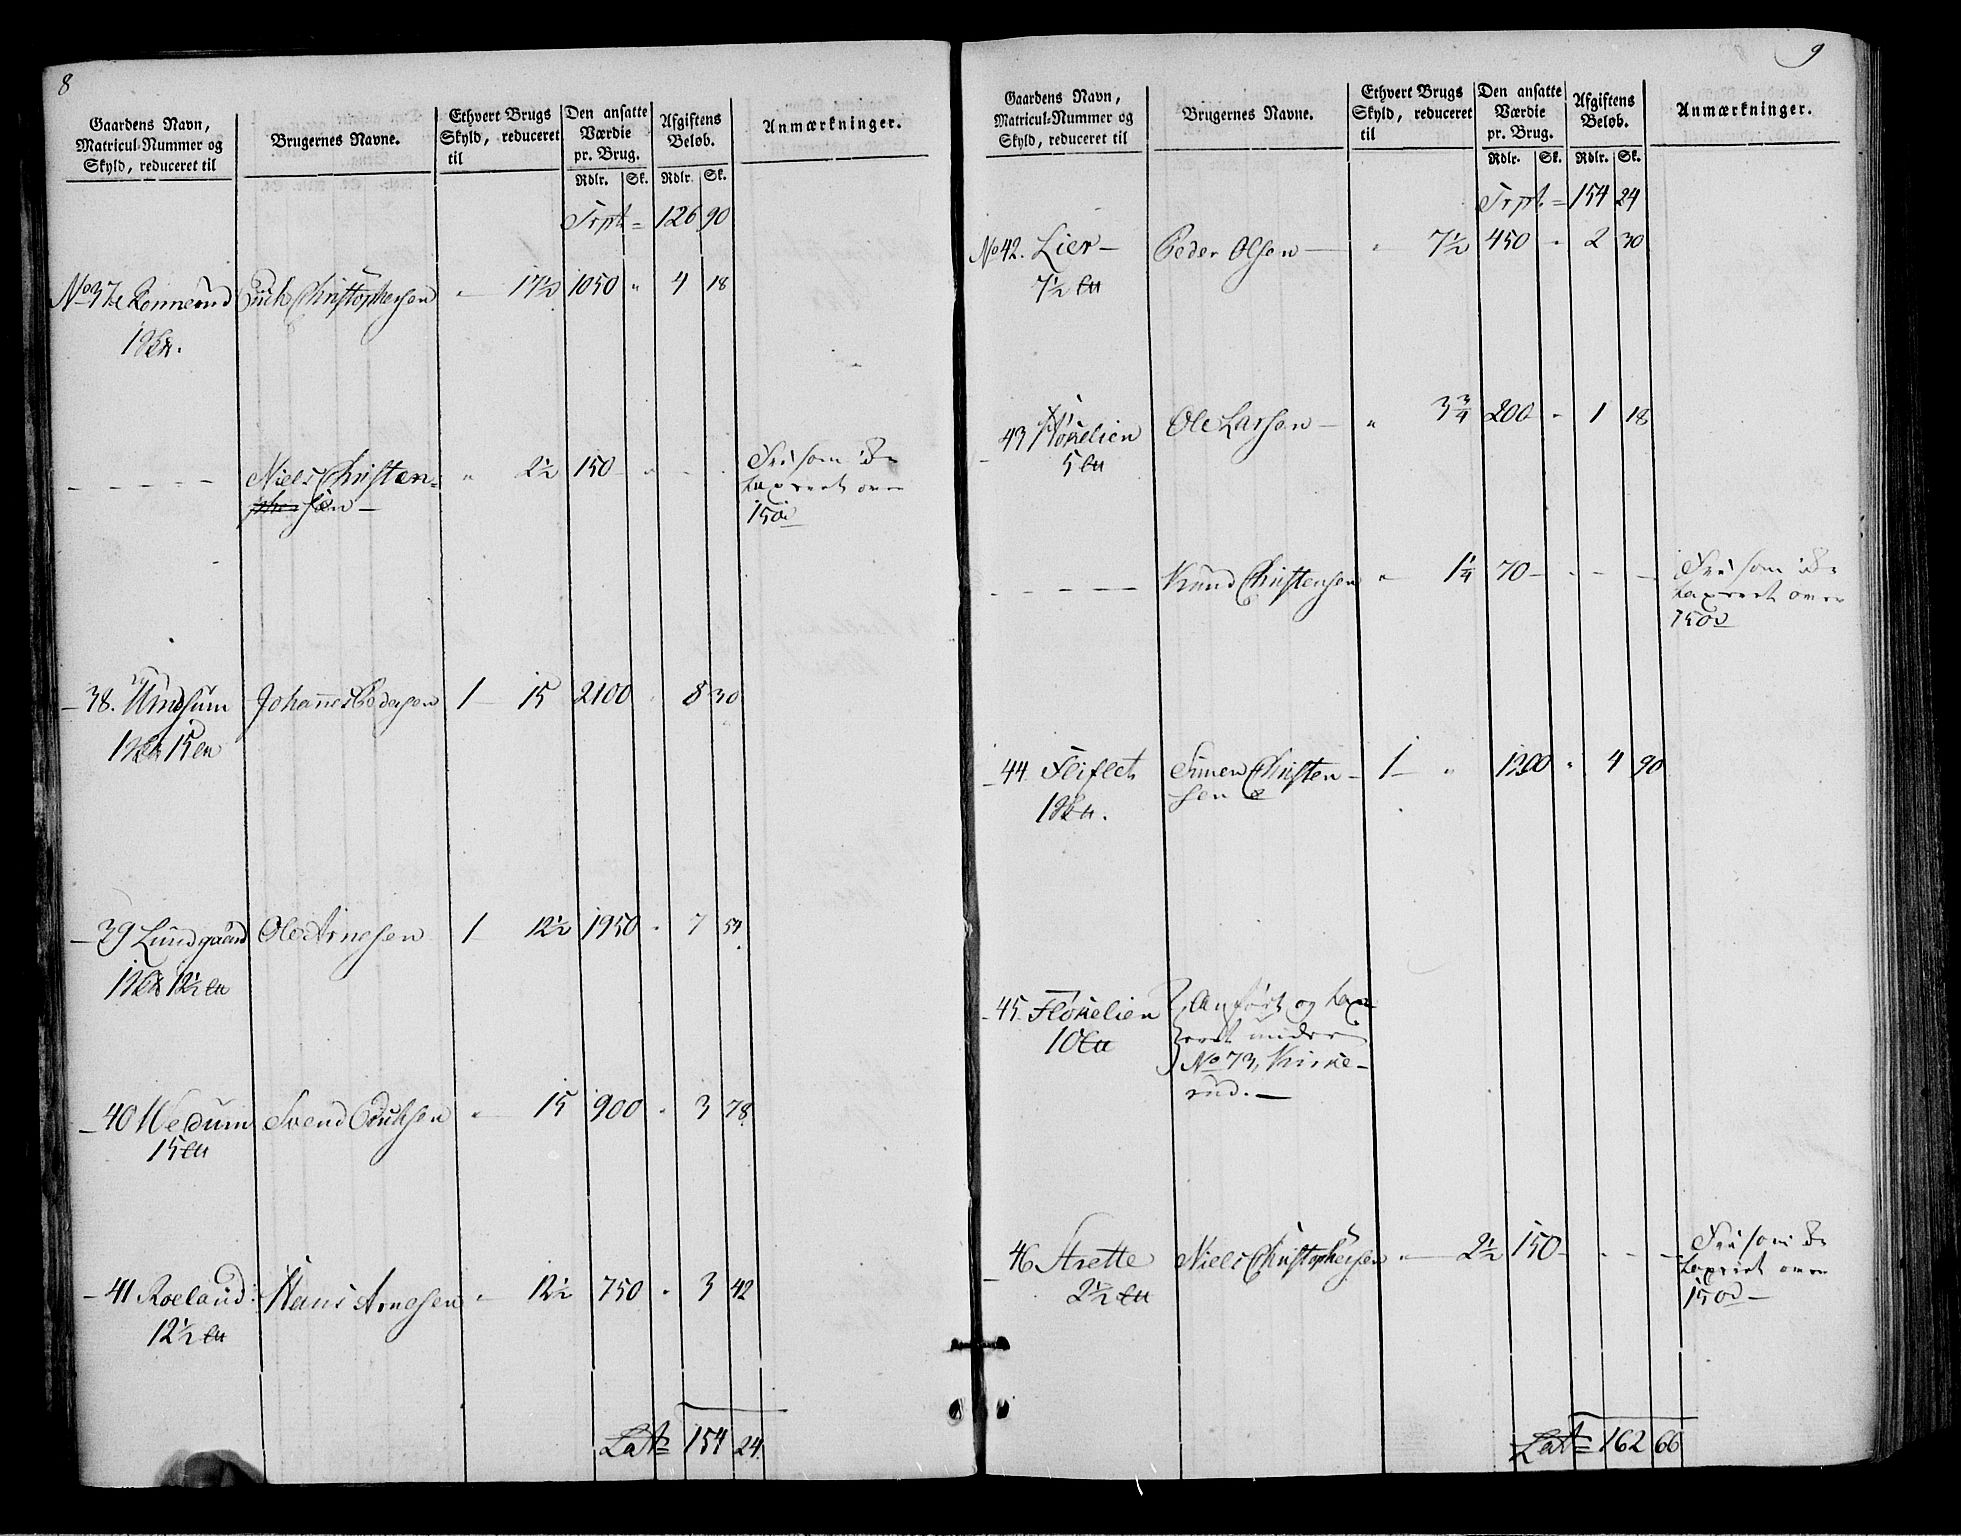 8
Gaardens Navn, Matricul-Nummer og Skyld, reduceret til
Brugernes Navne.
Ethvert Brugs Skyld, reduceret til
Den ansatte Værdie pr. Brug.
Afgiftens Beløb.
Anmærkninger.
Rdlr. Sk. Rdlr. Sk.
Trpt = 126 90
No 37. Rønnerud Erich Christophersen " 17½ 1050 " 4 18
– – – – – Niels Christen= " 2½ 150 – " – . Fri som ikke
sen – taxeret over
150
– 38. Johannes Pedersen 1 – 15 2100 " 8 30
– 39 Lundgaard Ole Arnesen 1 – 12½ 1950 " 7 54
12½
– 40 Hedum Svend Erichsen " – 15 900 " 3 78.
15
– 41 Roelaud: Hans Arnesen " – 12½ 750 " 3 42
12½
Lat= 154 24.
9
Gaardens Navn, Matricul-Nummer og Skyld, reduceret til
Brugernes Navne.
Ethvert Brugs Skyld, reduceret til
Den ansatte Værdie pr. Brug.
Afgiftens Beløb.
Anmærkninger.
Rdlr. Sk. Rdlr. Sk.
Trpt. = 154 24
No 42. Lier – Peder Olsen – " 7½ 450 " 2 30
7½
– 43 Fløxelien Ole Larsen – " 3¾ 200 – " 1 18
5
– – – – – Knud Christensen " – 1¼ 70 – – – – Fri som ikke
taxeret over
150
– 44. Fliflet Simen Christen – 1 – " 1200 " 4 90
sen
– 45. Fløxelien Anført og tax
10 eret under
No 73, Kirke-
rud. –
– 46. Strette Niels Christophersen " – 2½ 150 – – – – Fri som ikke
2½ taxeret over
150 –
Lat= 162 66